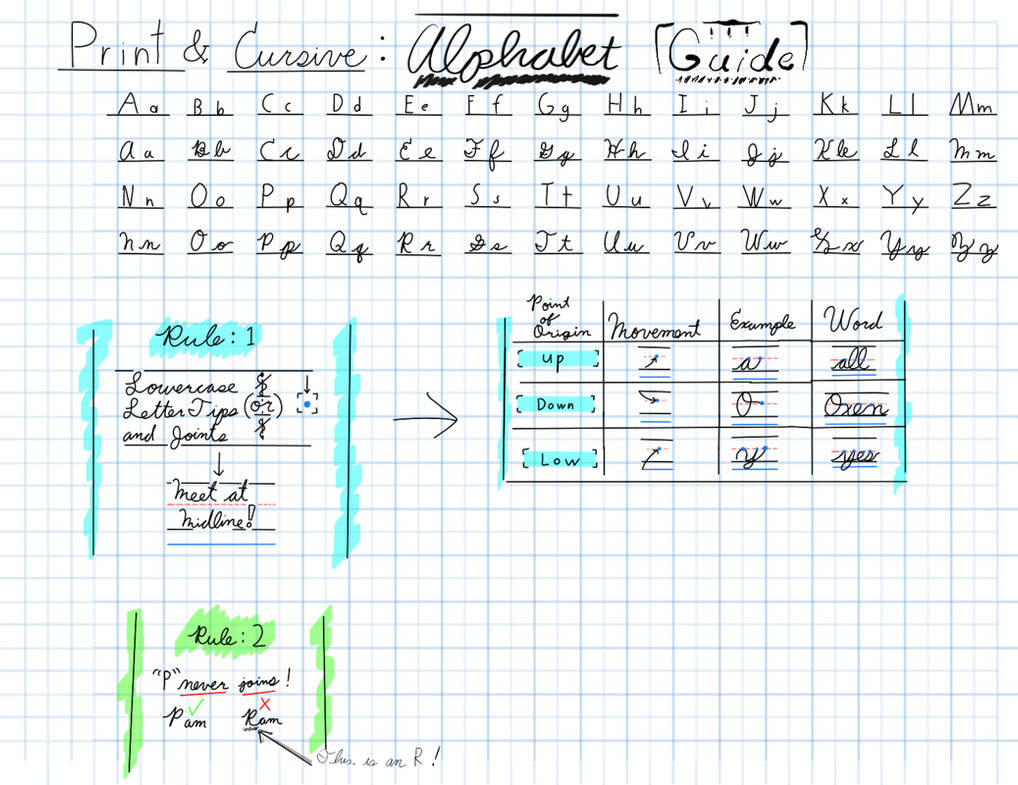 Print & Cursive: Alphabet [Guide]
Aa Bb Cc Dd Ee Ff Gg Hh Ii Jj Kk Ll Mm
Aa Bb Cc Dd Ee Ff Gg Hh Ii Jj Kk Ll Mm
Nn Oo Pp Qq Rr Ss Tt Uu Vv Ww Xx Yy Zz
Nn Oo Pp Qq Rr Ss Tt Uu Vv Ww Xx Yy Zz
Rule: 1
Lowercase
Letter Tips (or)
and Joints
Meet at
Midline!
Point of Origin Movement Example Word
[Up] a all
[Down] O Oxen
[Low] y yes
Rule: 2
"P" never joins!
Pam Ram
This is an R!